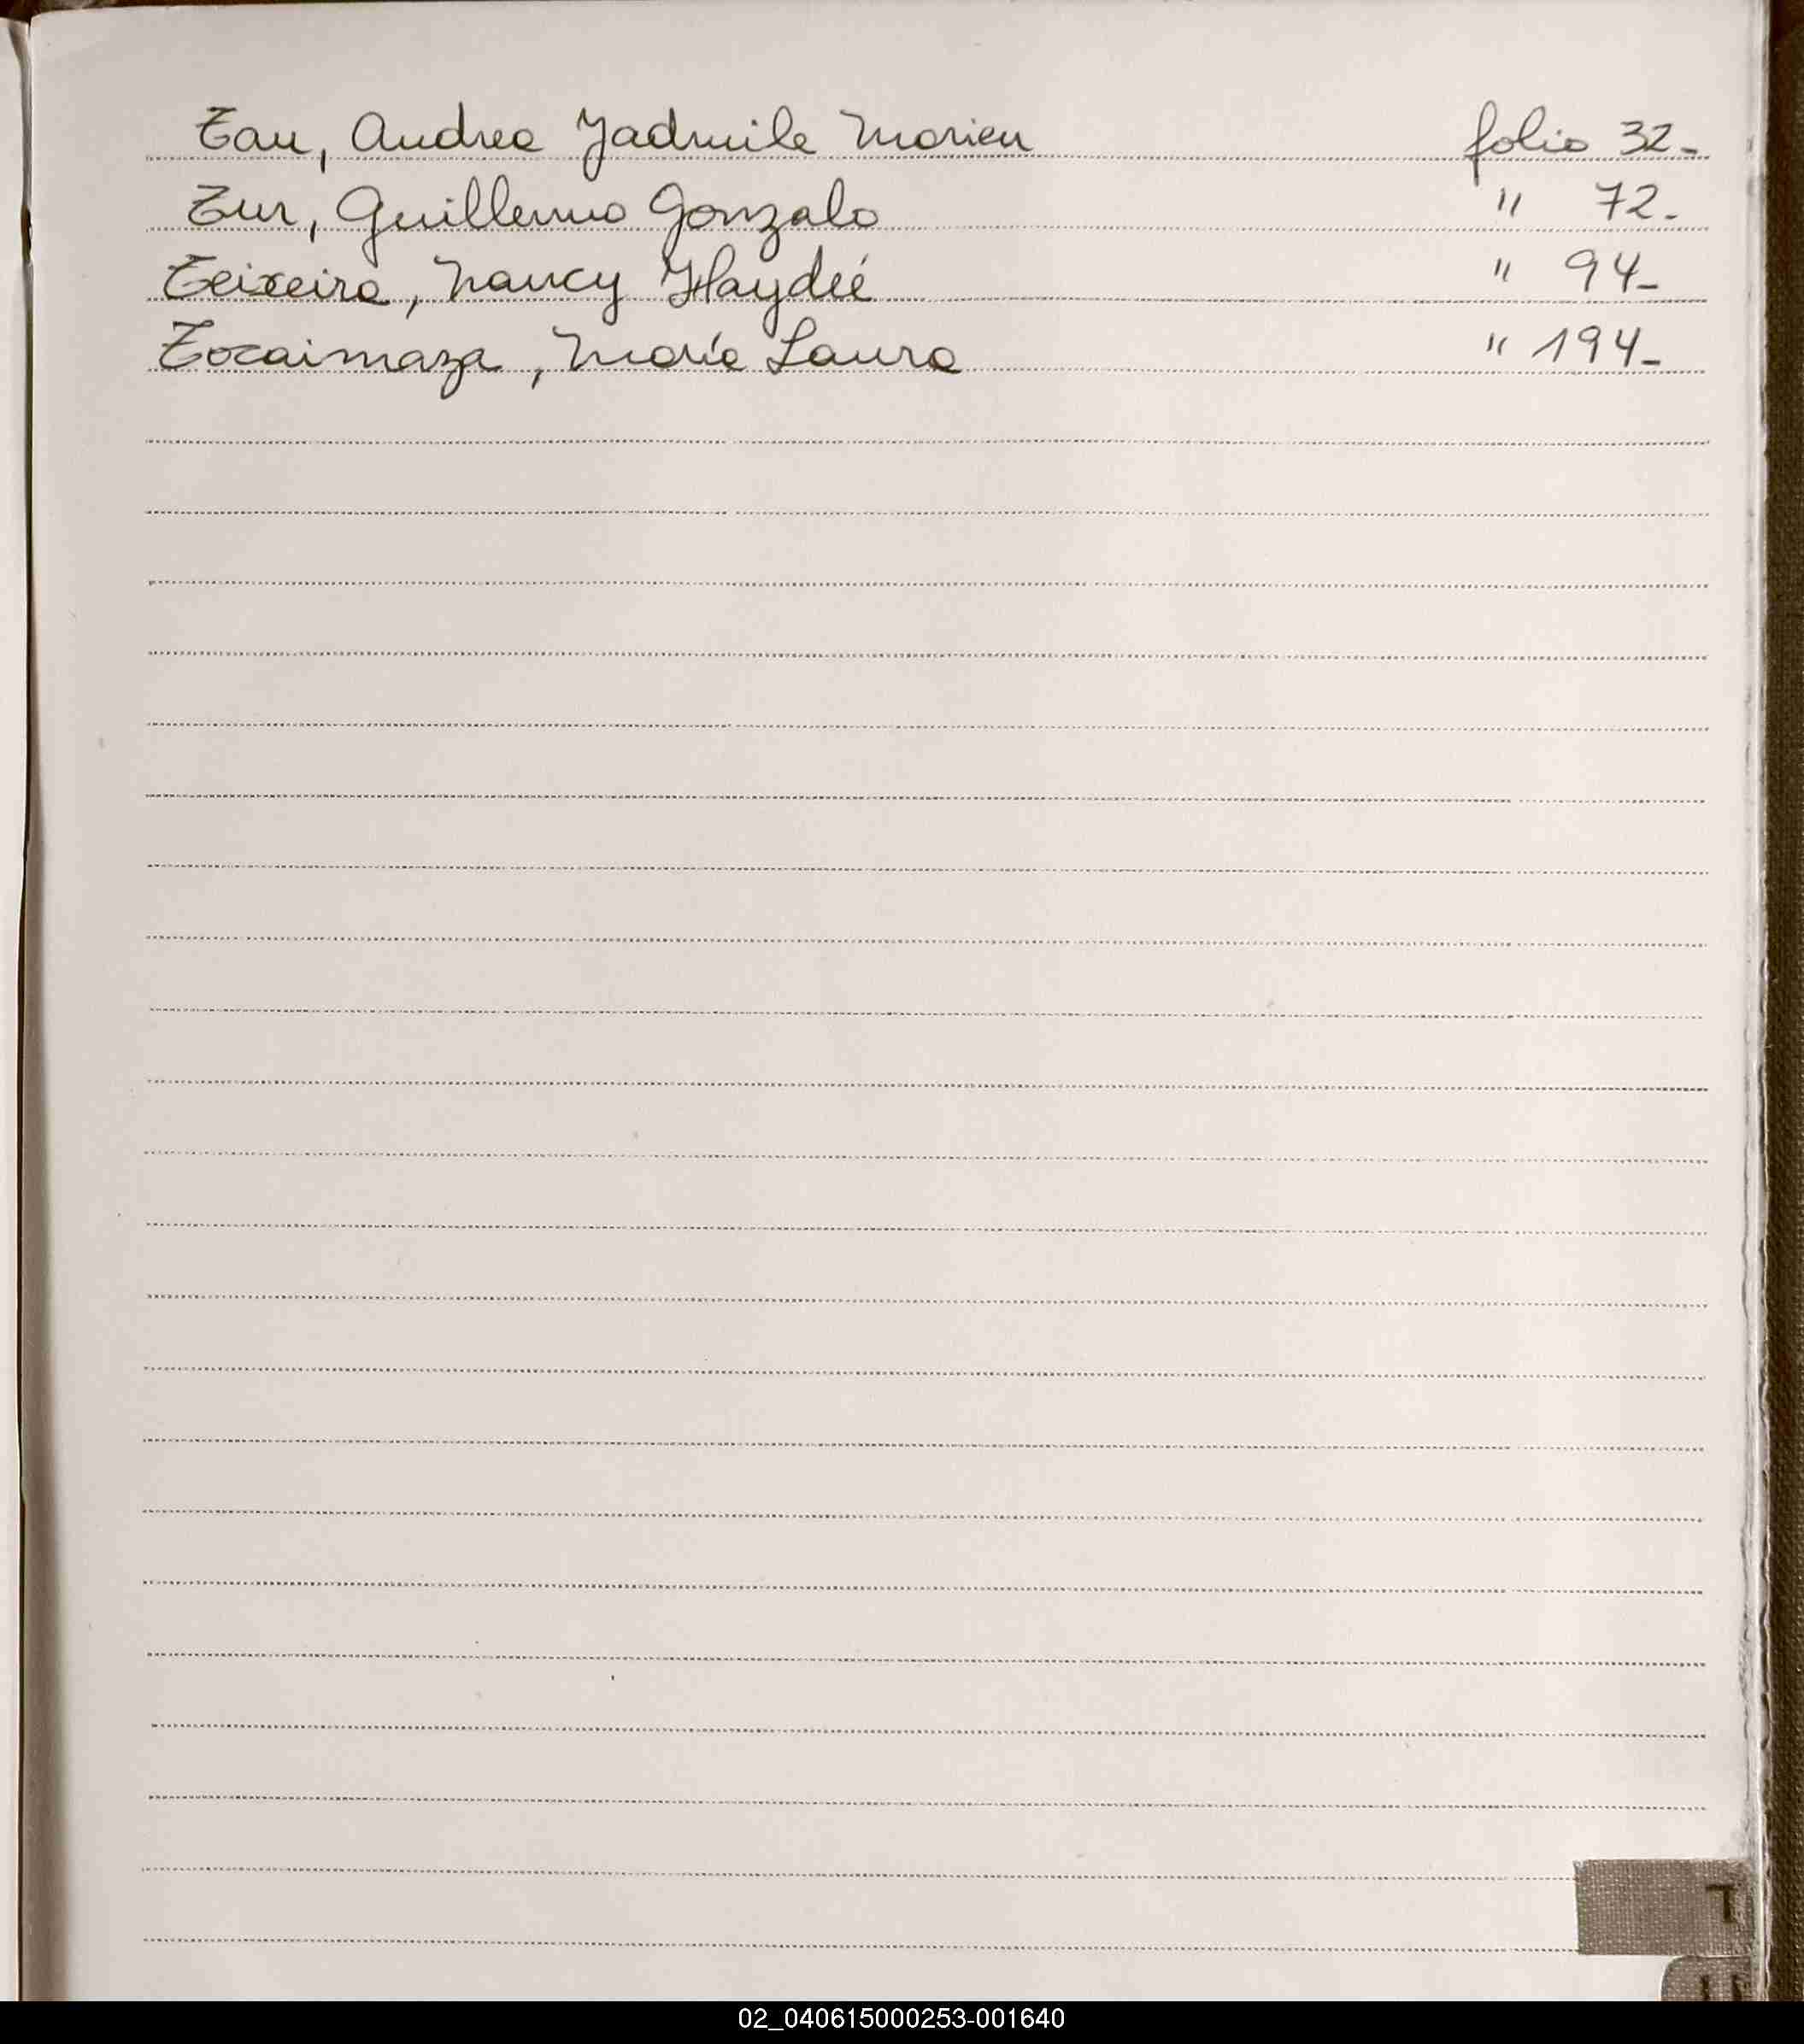 Tau, Andrea Yadmile Marien folio 32-
Tur, Guillermo Gonzalo " 72-
Teixeira, Nancy Haydeé " 94-
Tocaimaza, María Laura " 194-
T
U
02_040615000253-001640